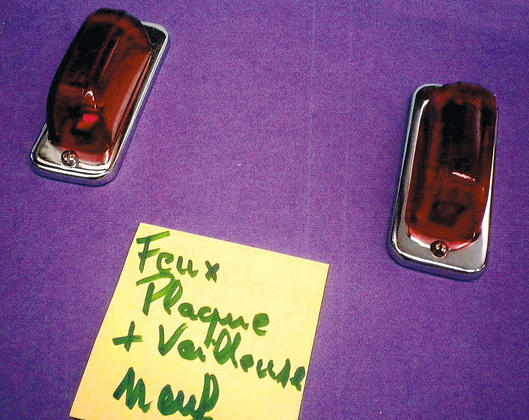 Feux
Plaque
+ Veilleuse
Neuf